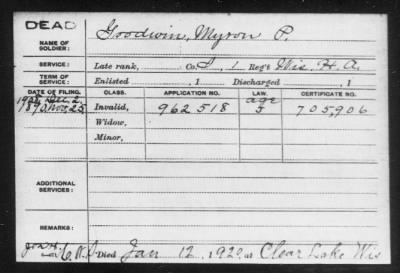 DEAD
NAME OF SOLDIER: Goodwin, Myron P.
SERVICE: Late rank, Co. I, 1 Reg't Wis. H. A.
TERM OF SERVICE: Enlisted , 1 Discharged , 1
DATE OF FILING. CLASS. APPLICATION NO. LAW. CERTIFICATE NO.
Dec. 2, age
1890, Nov. 25 Invalid, 962518 5 705,906
Widow,
Minor,
ADDITIONAL SERVICES:
REMARKS:
Died Jan 12, 1920, at Clear Lake Wis